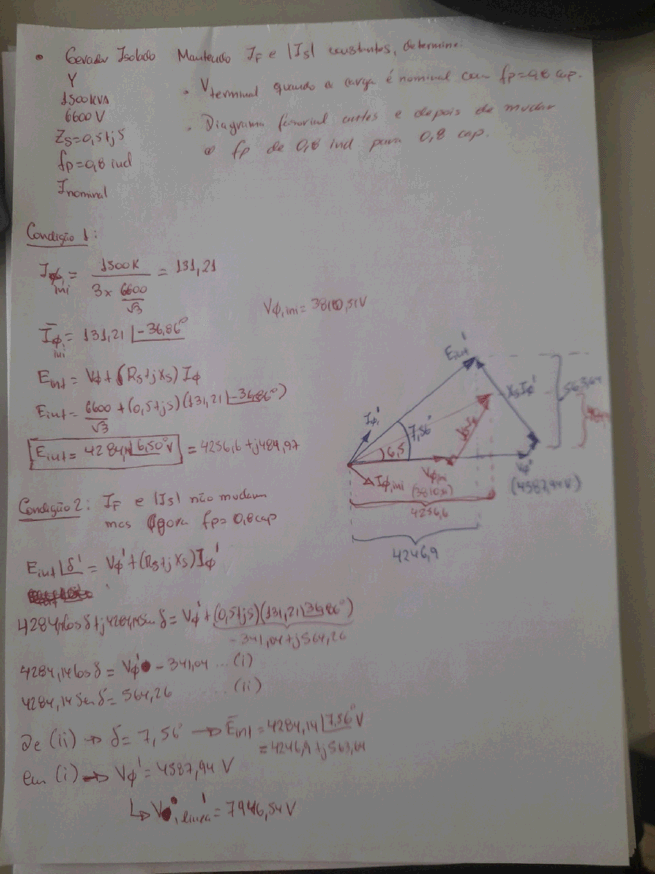 • Gerador Isolado Mantendo IF e |Is| constantes, determine:
Y
1500KVA
6600V
Zs=0,5+j5
fp=0,8 ind
Inominal
• Vterminal quando a carga é nominal com fp=0,8 cap.
• Diagrama fasorial antes e depois de mudar
o fp de 0,8 ind para 0,8 cap.
Condição 1:
Iϕ ini = 1500K / (3 × 6600/√3) = 131,21
Vϕ,ini = 3810,51V
Īϕ ini = 131,21 |-36,86°
Eint = Vϕ + (Rs+jXs) Iϕ
Eint = 6600/√3 + (0,5+j5)(131,21 |-36,86°)
Eint = 4284,14 |6,50° V = 4256,6 + j484,97
Condição 2: IF e |Is| não mudam
mas agora fp=0,8cap
Eint |δ' = Vϕ' + (Rs+jXs) Iϕ'
4284,14cos δ + j4284,14sen δ = Vϕ' + (0,5+j5)(131,21 |36,86°)
-341,04 + j564,26
4284,14 cos δ = Vϕ' - 341,04 ... (i)
4284,14 sen δ = 564,26 ... (ii)
De (ii) → δ = 7,56° → Ēint = 4284,14 |7,56° V
= 4246,9 + j563,64
em (i) → Vϕ' = 4587,94 V
↳ V', linea = 7946,54 V
Eint'
XsIϕ'
563,64
Iϕ'
7,56°
6,5
Vϕ,ini
(3810,5)
Vϕ'
(4587,94 V)
Iϕ,ini
4256,6
4246,9